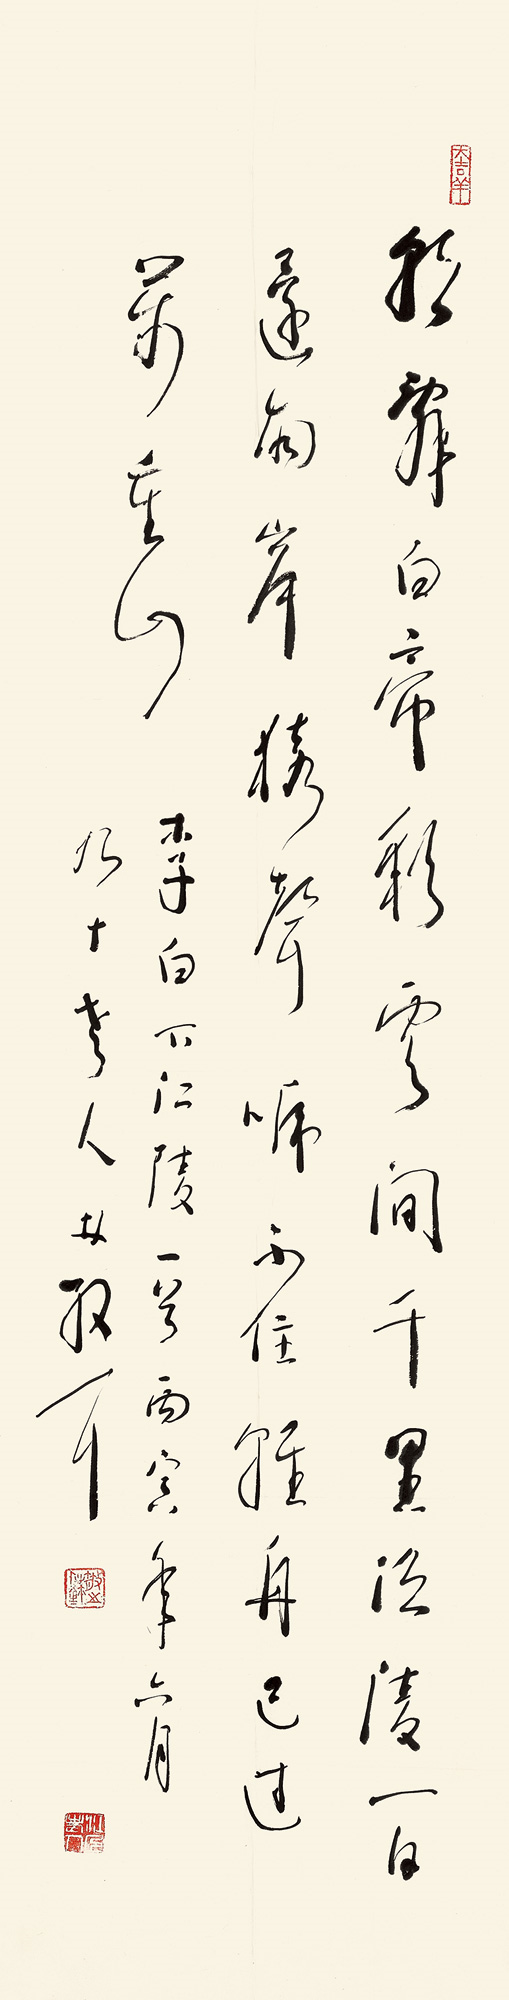 大吉羊
朝辭白帝彩雲間千里江陵一日
還兩岸猿聲啼不住輕舟已過
萬重山
李白下江陵一首丙寅年六月
九十老人林散耳